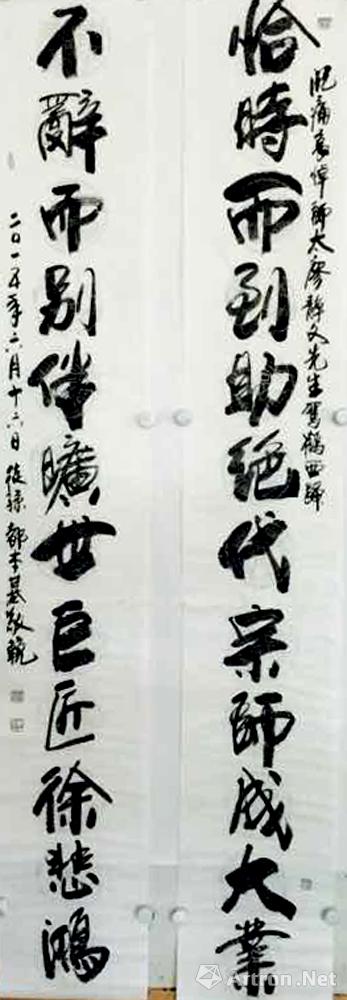 沉痛哀悼师太廖静文先生驾鹤西归
恰時而到助絕代宗師成大業
不辭而别伴曠世巨匠徐悲鴻
二〇一五年六月十六日後孫都本基敬輓
Artron.Net